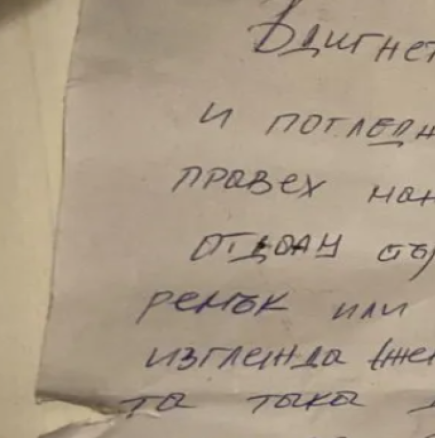 Вдигнет
и погледн
правех нак
отдолу
ремък или
изглежда
та така